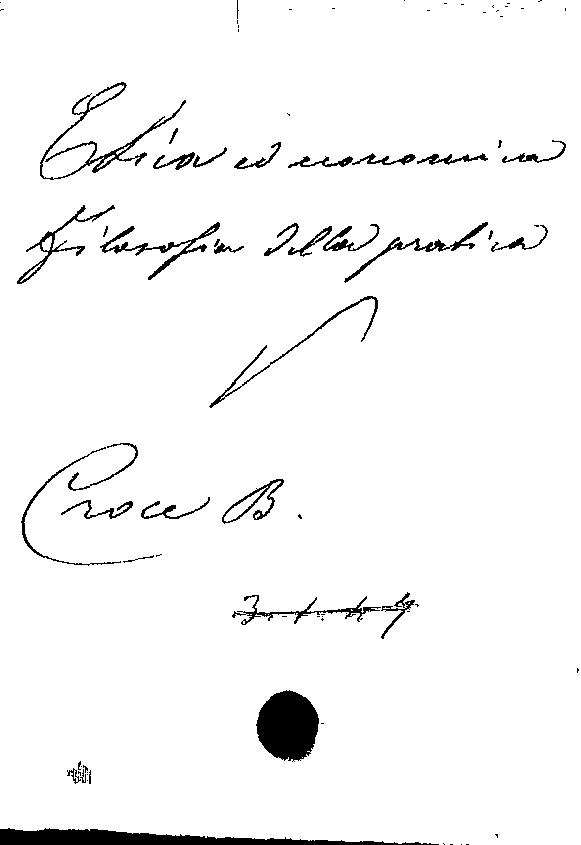 Etica ed economica
Filosofia della pratica
V
Croce B.